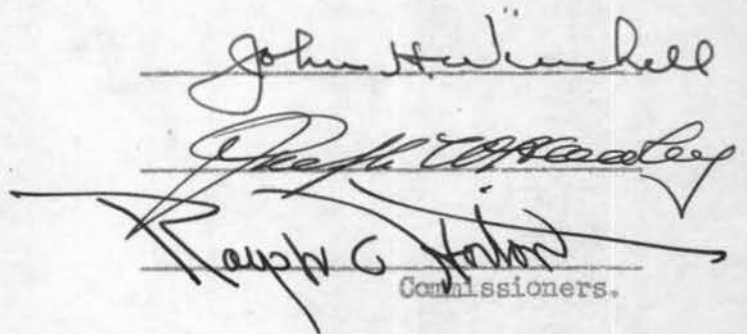 John H Winchell
Joseph W Hawley
Ralph C Horton
Commissioners.